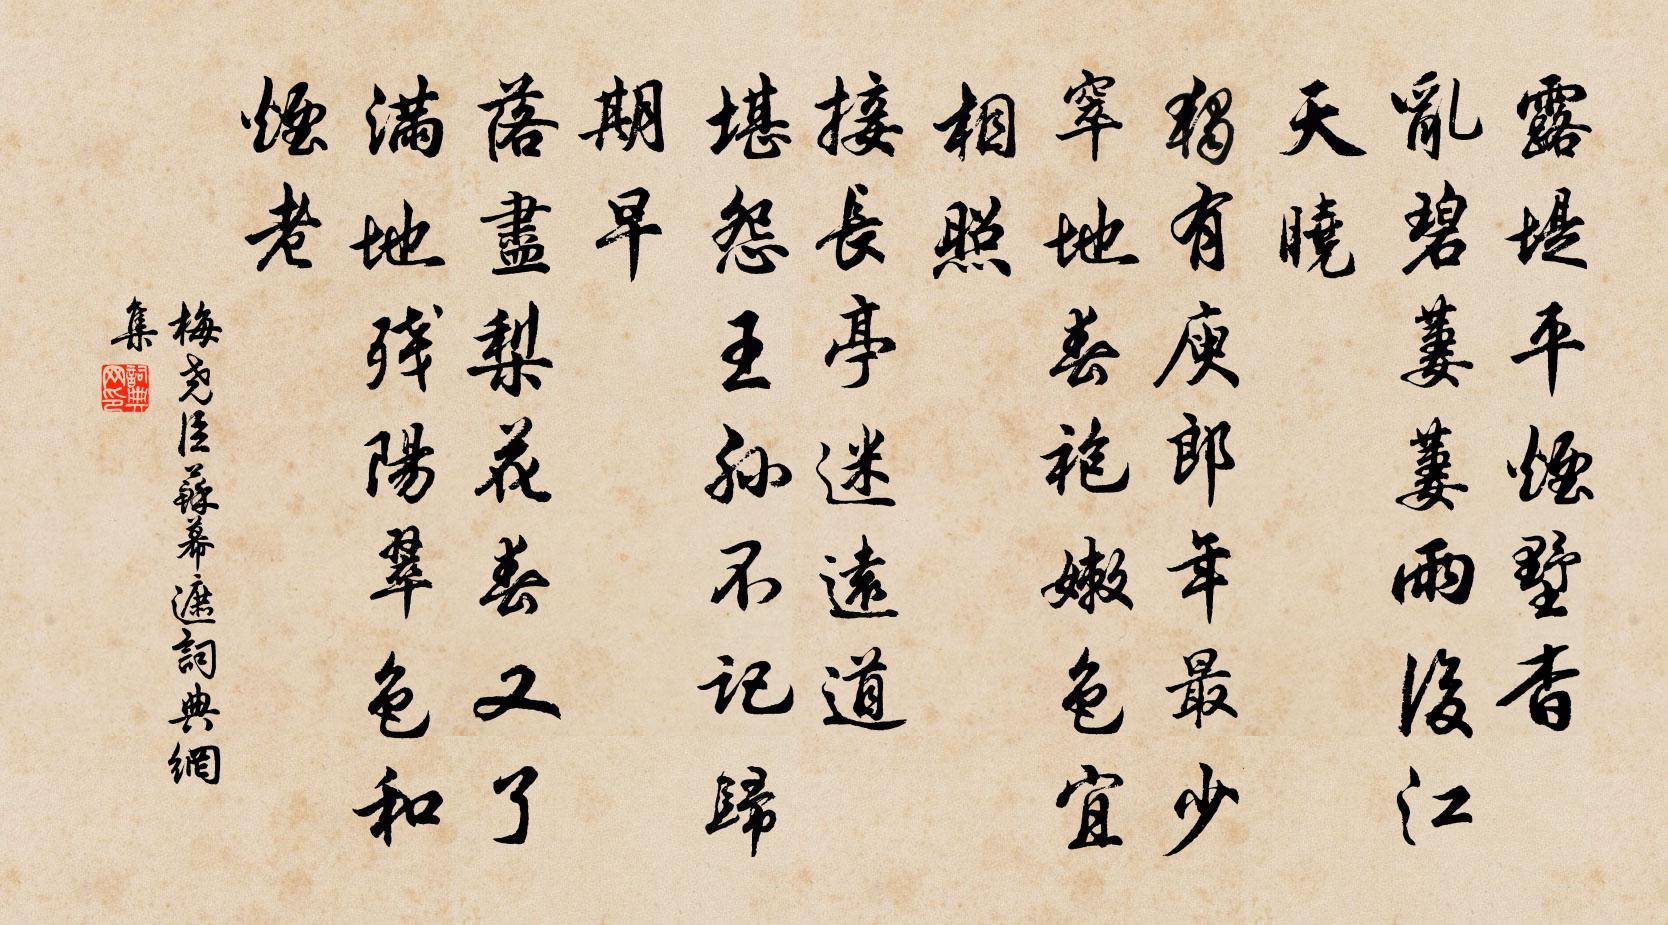 露堤平煙墅杳
亂碧萋萋雨後江
天曉
獨有庾郎年最少
窣地春袍嫩色宜
相照
接長亭迷遠道
堪怨王孫不記歸
期早
落盡梨花春又了
滿地残陽翠色和
煙老
梅尧臣蘇幕遮詞典網
集
詞典
网印